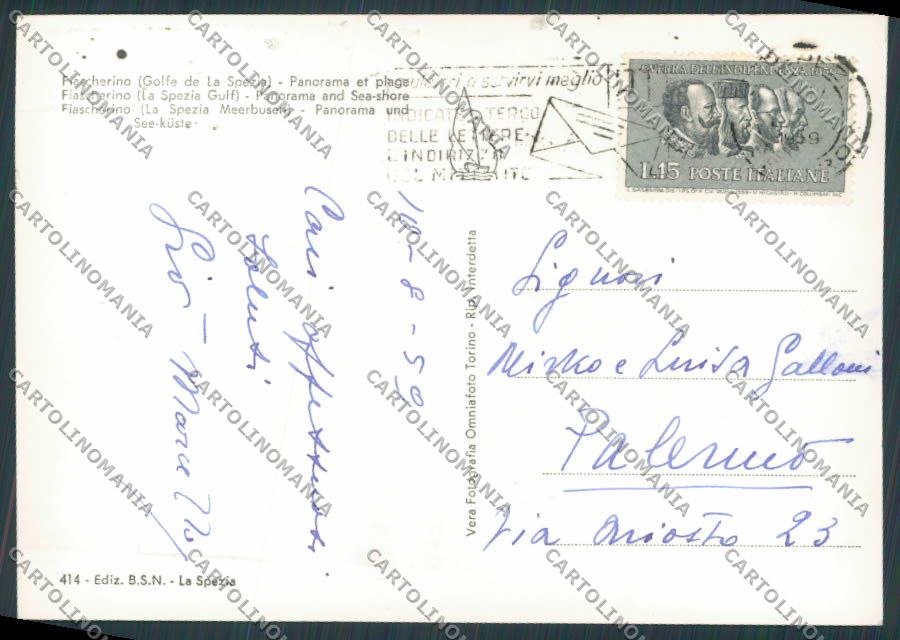 Fiascherino (Golfe de La Spezia) - Panorama et plage
Fiascherino (La Spezia Gulf) - Panorama and Sea-shore
Fiascherino (La Spezia Meerbusen) - Panorama und
See-küste
servirvi meglio
DELLE LETTERE
L'INDIRIZZO
DEL MITTENTE
GUERRA DELL'INDIPENDENZA
L.15 POSTE ITALIANE
14-8-59
Cari affettuosi
saluti
Vera Fotografia Omniafoto Torino - Rip. Interdetta
Signori
Mirko e Luisa Galloni
Palermo
Via Ariosto 23
414 - Ediz. B.S.N. - La Spezia
CARTOLINOMANIA